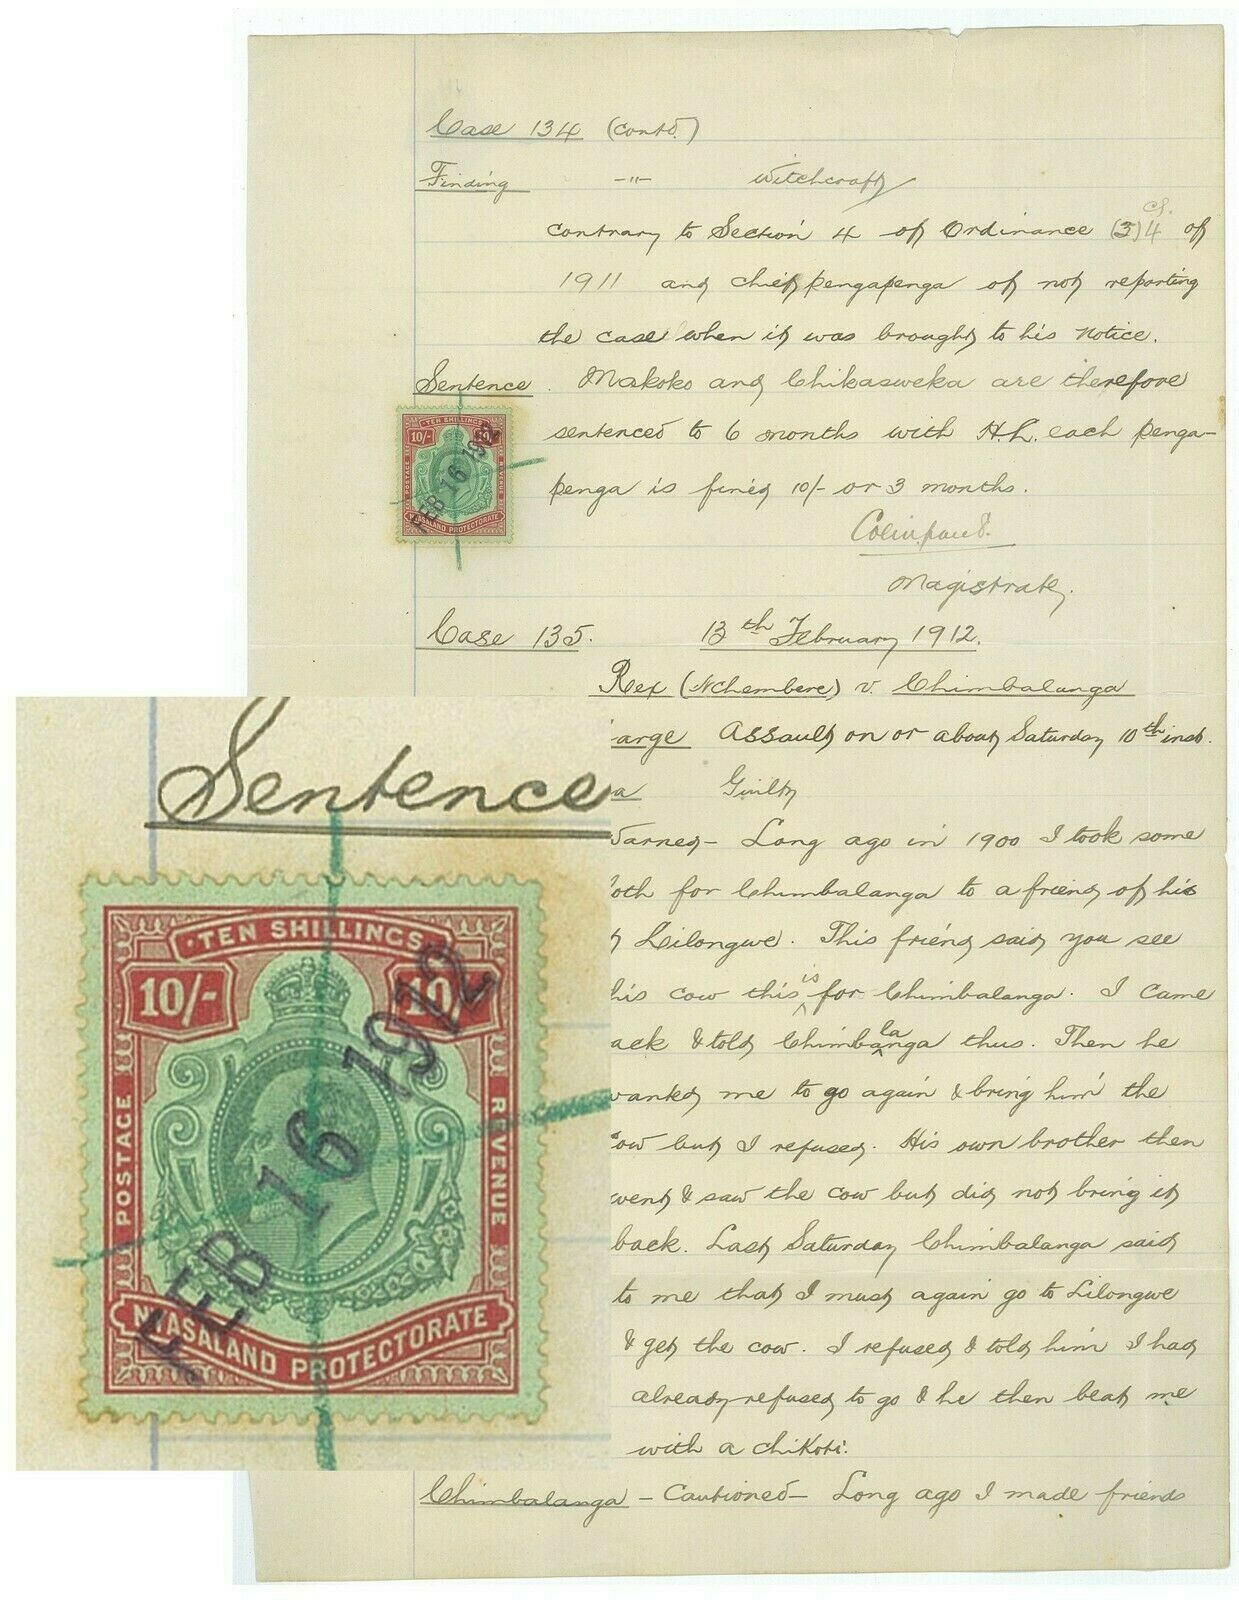 Case 134 (contd.)
Finding -"- Witchcraft
contrary to Section 4 of Ordinance (3) 4 of
1911 and chief pengapenga of not reporting
the case when it was brought to his notice.
Sentence. Makoko and Chikasweka are therefore
sentenced to 6 months with H.L. each penga-
penga is fined 10/- or 3 months.
Magistrate.
TEN SHILLINGS
10/- 10/-
POSTAGE REVENUE
NYASALAND PROTECTORATE
FEB 16 1912
Case 135. 13th February 1912.
Rex (Nchembere) v. Chimbalanga
arge Assault on or about Saturday 10th inst.
a Guilty
Warned - Long ago in 1900 I took some
loth for Chimbalanga to a friend of his
Leilongwe. This friend said you see
his cow this is for Chimbalanga. I came
ack & told Chimbalanga thus. Then he
wanted me to go again & bring him the
cow but I refused. His own brother then
went & saw the cow but did not bring it
back. Last Saturday Chimbalanga said
to me that I must again go to Lilongwe
& get the cow. I refused & told him I had
already refused to go & he then beat me
with a chikoti.
Chimbalanga - Cautioned - Long ago I made friends
Sentence
TEN SHILLINGS
10/- 10/-
POSTAGE REVENUE
NYASALAND PROTECTORATE
FEB 16 1912